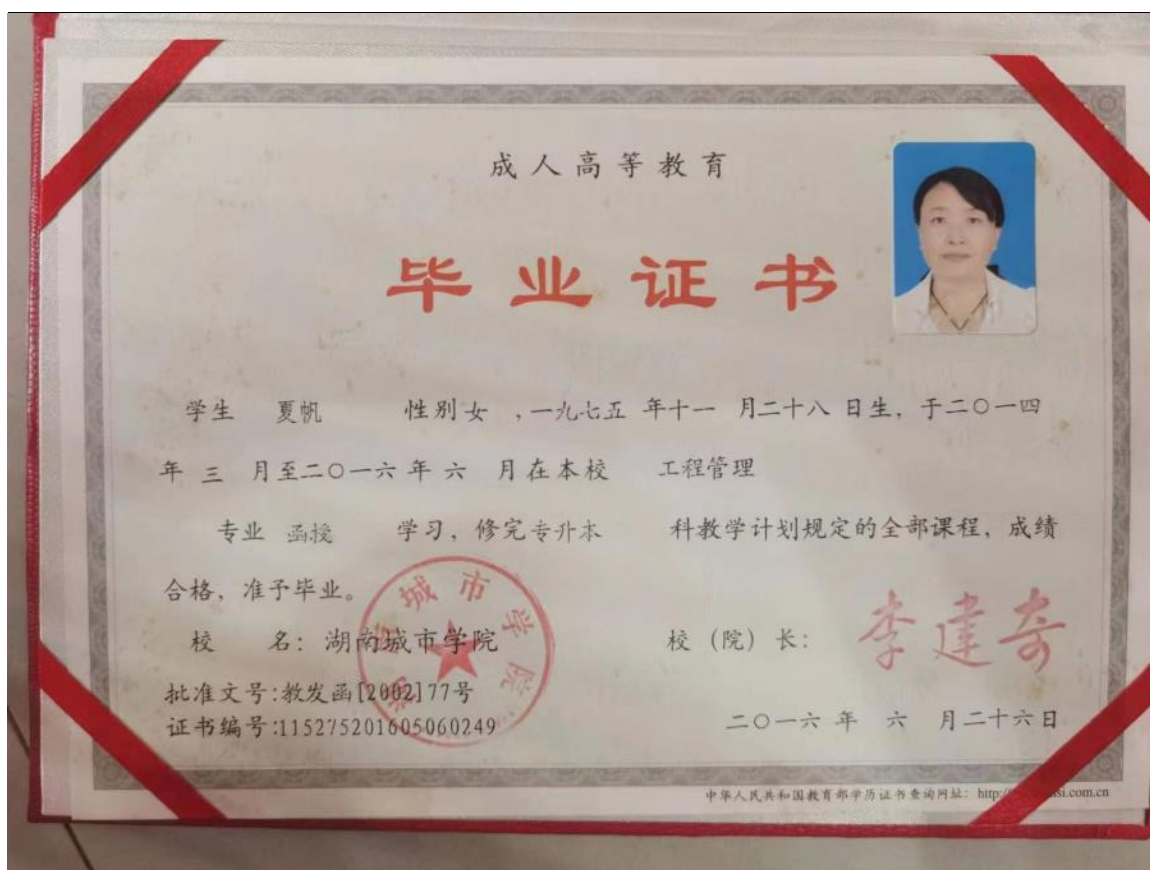 成人高等教育
毕业证书
学生 夏帆 性别女 ,一九七五 年十一 月二十八 日生, 于二〇一四
年 三 月至二〇一六 年 六 月在本校 工程管理
专业 函授 学习, 修完专升本 科教学计划规定的全部课程, 成绩
合格, 准予毕业。
校 名: 湖南城市学院
校 (院) 长: 李建奇
批准文号:教发函[2002]77号
证书编号:115275201605060249
二〇一六 年 六 月二十六日
城市学院
中华人民共和国教育部学历证书查询网址: http:/ si.com.cn